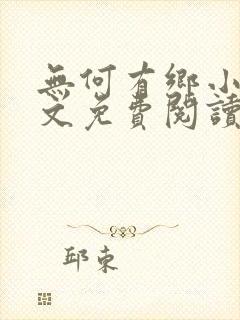 無何有鄉小
文免費閱讀
邱東